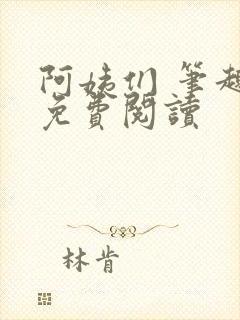 阿姨们 筆趣
免費閱讀
林肯